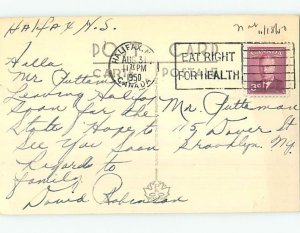 Halifax N.S.
POST CARD
CARTE POSTALE
HALIFAX
AUG 31
PM
1950
CANADA
EAT RIGHT
FOR HEALTH
3c
Hello
Mr Putteman
Leaving Halifax
soon for the
State Hope to
See You Soon
Regards to
family
David Robinson
Mr. Putteman
75 Dover St
Brooklyn. Ny.